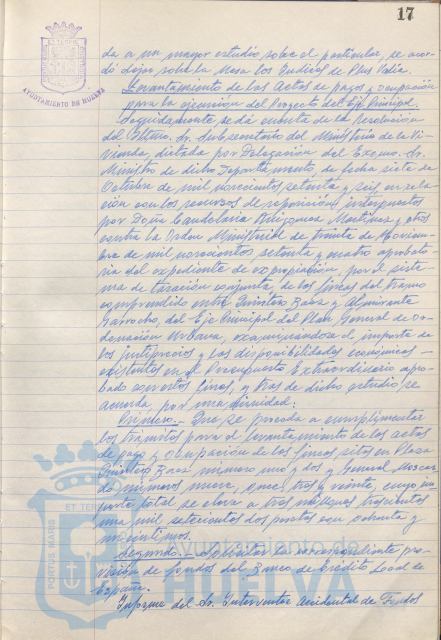 17
AYUNTAMIENTO DE HUELVA
da a un mayor estudio sobre el particular, se acor-
dó dejar sobre la Mesa los Indices de Plus Valía.
Levantamiento de las Actas de pagos y ocupación
para la ejecución del Proyecto del Eje Principal.
Seguidamente se dá cuenta de la resolución
del Iltmo. Sr. Subsecretario del Ministerio de la Vi-
vienda, dictada por Delegación del Excmo. Sr.
Ministro de dicho Departamento, de fecha siete de
Octubre de mil novecientos setenta y seis, en rela-
ción con los recursos de reposición interpuestos
por Doña Candelaria Martínez y otros
contra la Orden Ministerial de treinta de Noviem-
bre de mil novecientos setenta y cuatro aprobato-
ria del expediente de expropiación, por el siste-
ma de tasación conjunta, de las fincas del tramo
comprendido entre Quintero Baez y Almirante
Garrocho, del Eje Principal del Plan General de Or-
denación Urbana, examinándose el importe de
los justiprecios y las disponibilidades económicas
existentes en el Presupuesto Extraordinario apro-
bado con estos fines, y tras de dicho estudio se
acuerda por unanimidad:
Primero.- Que se proceda a cumplimentar
los trámites para el levantamiento de las actas
de pago y ocupación de las fincas sitas en Plaza
Quintero Baez número uno y dos y General Moscar-
dó número nueve, once, trece y veinte, cuyo im-
porte total se eleva a tres millones trescientas
una mil setecientas dos pesetas con ochenta y
céntimos.
Segundo.- Solicitar la correspondiente pro-
visión de fondos del Banco de Crédito Local de
España.
Informe del Sr. Interventor Accidental de Fondos
PORTUS MARIS ET TERRE
Ayuntamiento de
HUELVA